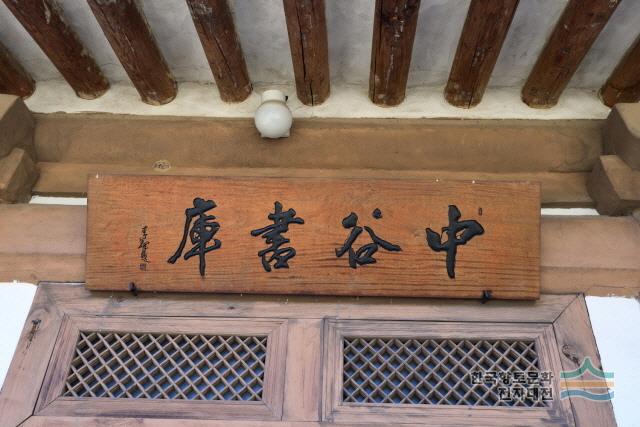 中谷書庫
한국향토문화
전자대전